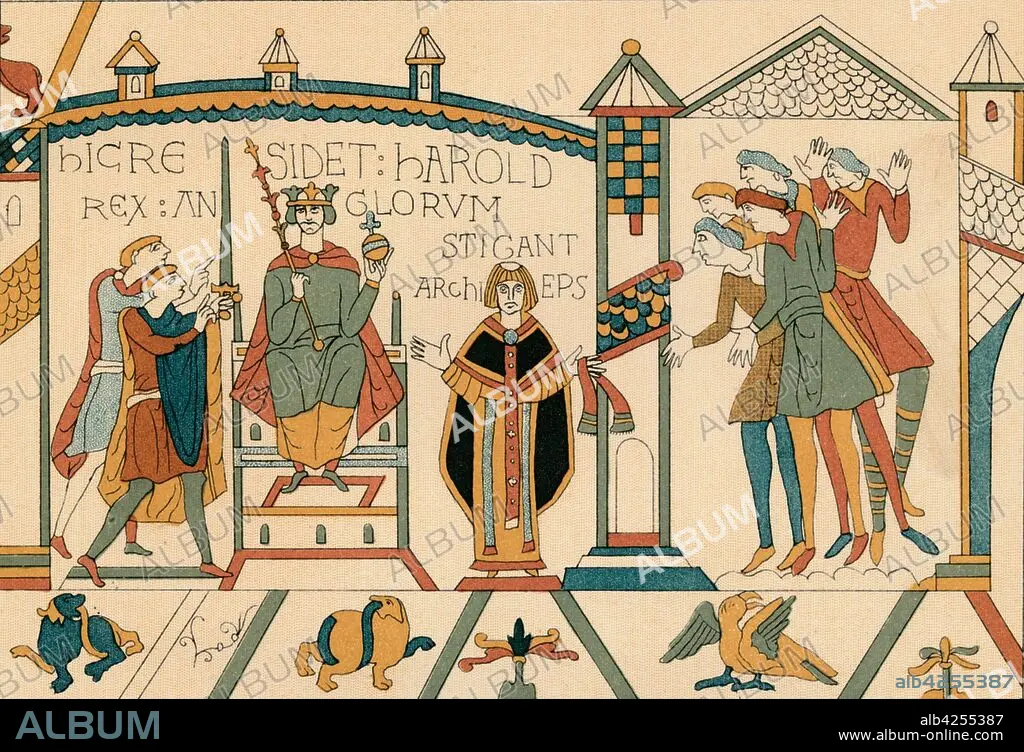 hICRE SIDET : hAROLD
REX : AN GLORVM
STIGANT
ARChI EPS
O
alb4255387
ALBUM
alb4255387
www.album-online.com